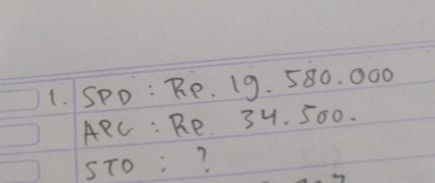 1. SPD : Rp. 19. 580.000
APC : Rp. 34. 500.
STD : ?